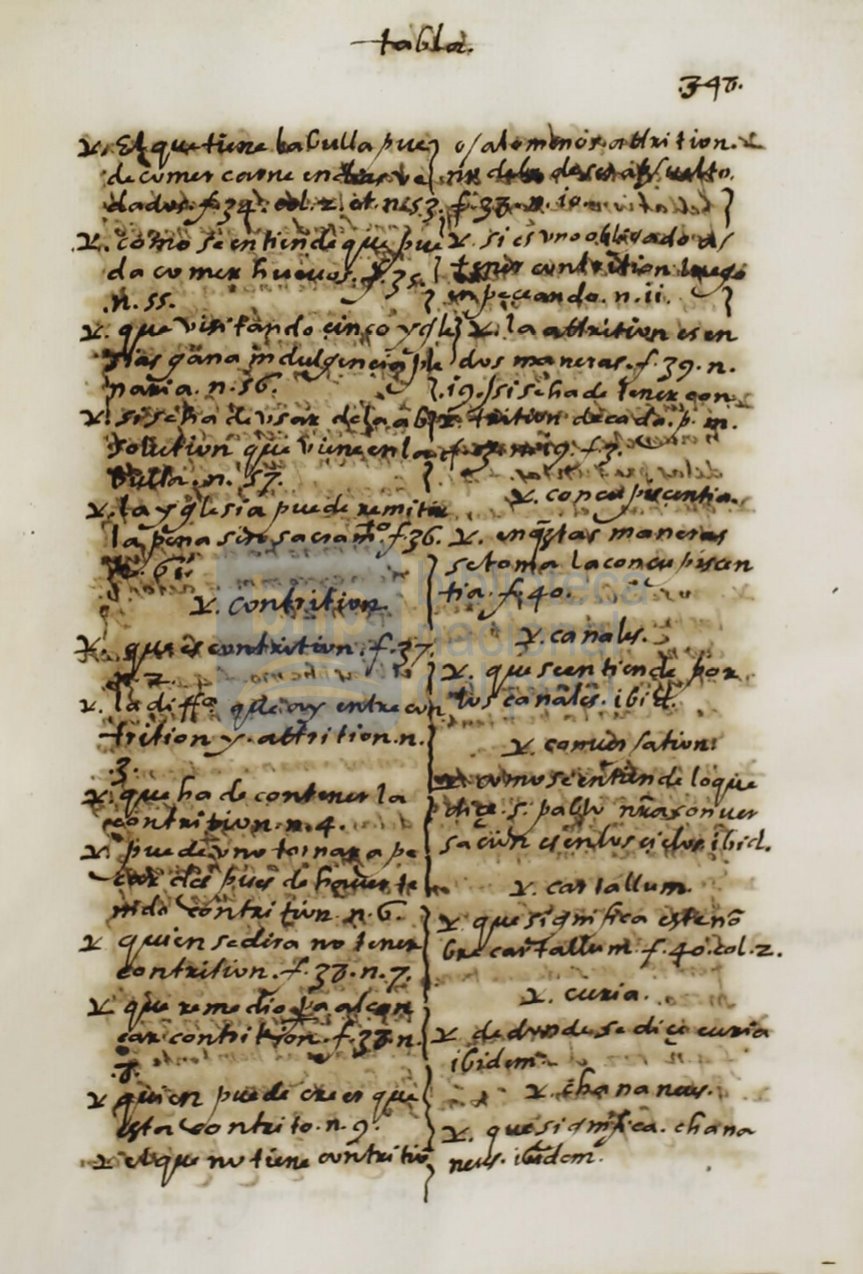 tabla.
.348.
V. El que tiene la bulla pue
de comer carne en dias ve
dados. f. 34. col. 2. et. n. 53.
V. como se entiende que pue
da comer huevos. f. 35.
.n. 55.
V. que visitando cinco ygle
sias gana indulgencia ple
naria. n. 56.
V. si se ha de usar de la ab
solution que viene en la
bulla. n. 57.
V. la yglesia puede remitir
la pena sin sacramto. f. 36.
n. 61.
V. contrition.
V. que es contrition. f. 37.
n. 2.
V. la diffa. que ay entre con
trition y. attrition. n.
.3.
V. que ha de contener la
contrition. n. 4.
V. puede uno tornar a pe
car des pues de hauer te
nido contrition. n. 6.
V quien se dira no tener
contrition. f. 38. n. 7.
V que remedio pa alcan
çar contrition. f. 38. n.
.8.
V quien puede creer que
esta contrito. n. 9.
V el que no tiene contritiō
o/ alomenos attrition.
no debe de ser absuelto.
f. 38. n. 10.
V. si es uno obligado a/
tener contrition luego
en peccando. n. 11.
V. la attrition es en
dos maneras. f. 39. n.
.19. / si se ha de tener con
trition de cada. p. m.
V. concupiscentia.
V. en qtas maneras
se toma la concupiscen
tia. f. 40.
V. canales.
V. que se entiende por
los canales. ibid.
V. conversation.
V. como se entiende lo que
diçe. s. pablo nra conver
sacion es en los cielos. ibid.
V. cartallum.
V. que significa este nō
bre cartallum. f. 40. col. 2.
V. curia.
V de donde se diçe curia
ibidem.
V. chananeus.
V. que significa. chana
neus. ibidem.